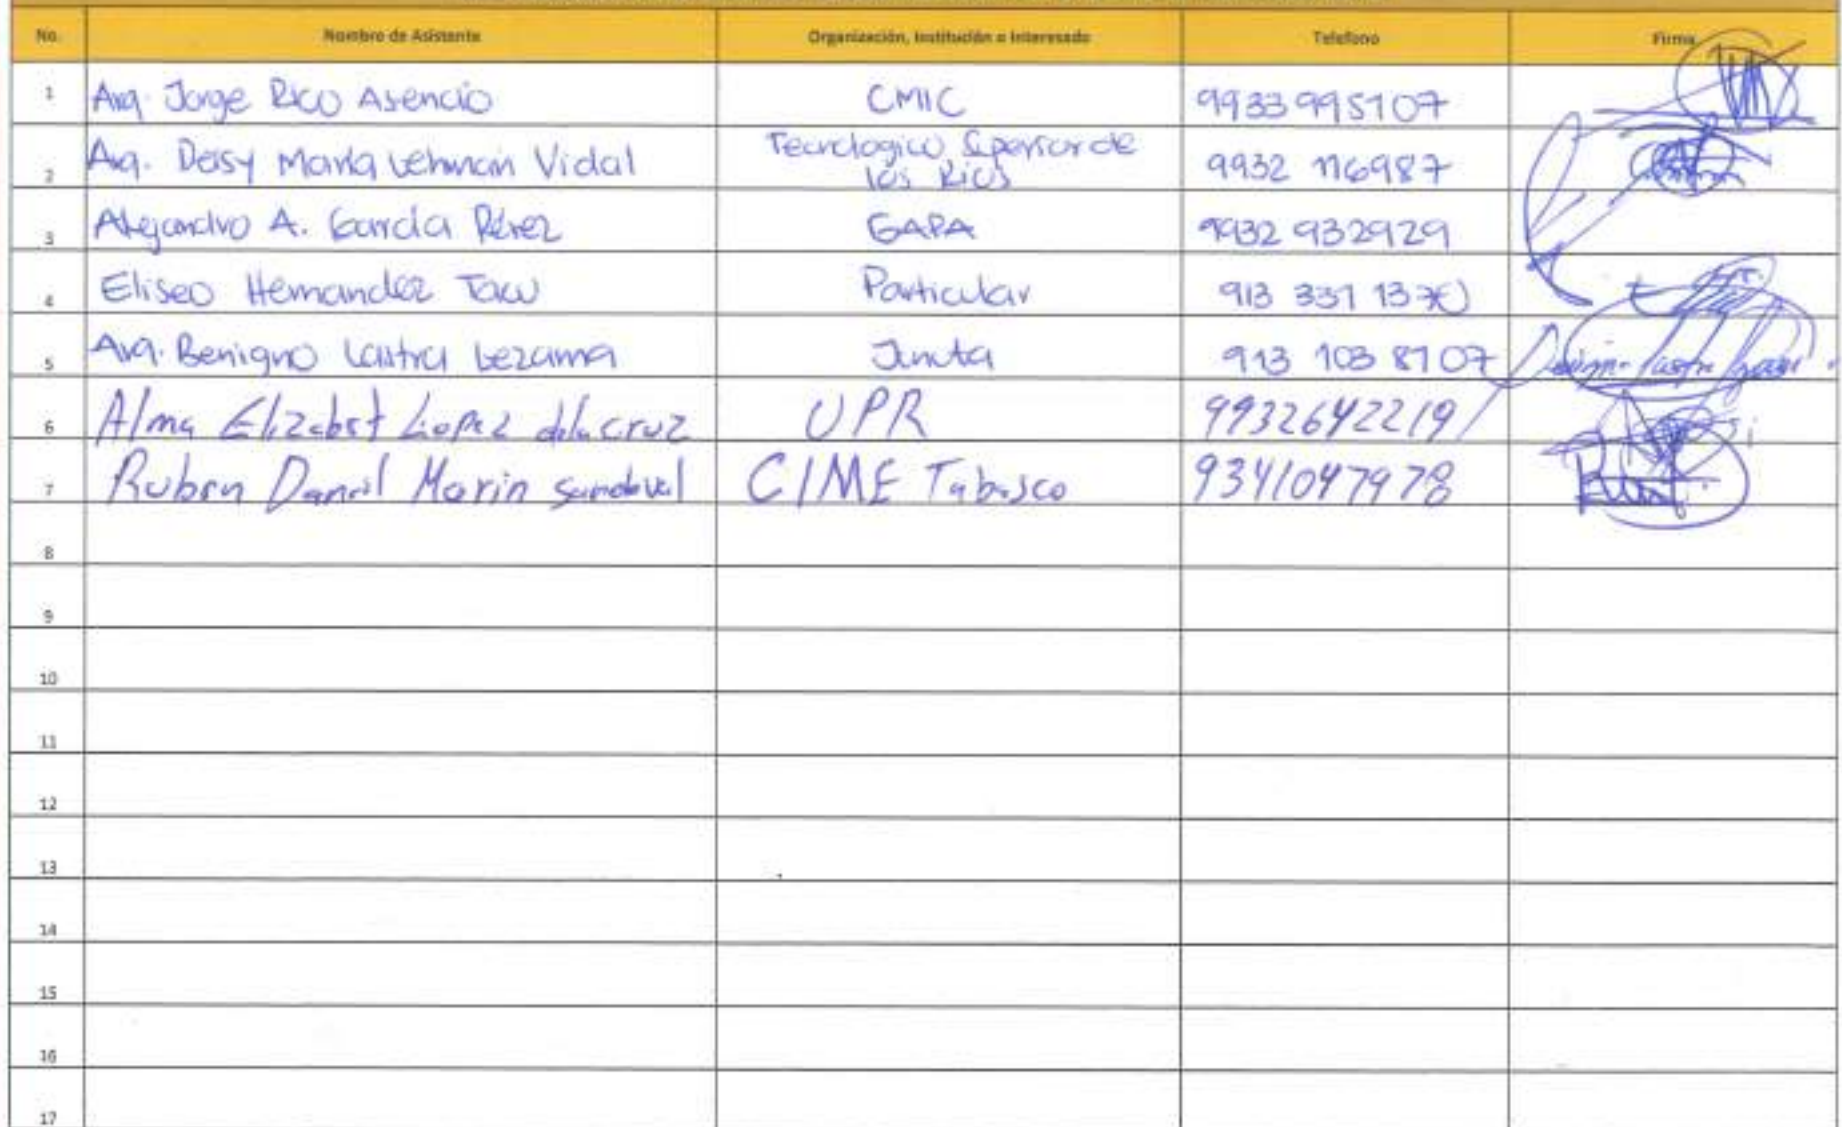 No. Nombre de Asistente Organización, Institución o Interesado Telefono Firma
1 Arq. Jorge Rico Asencio CMIC 9933995107
2 Arq. Deisy María Lehman Vidal Tecnologico Superior de
los Ríos 9932 116987
3 Alejandro A. García Pérez GAPA 9932 932929
4 Eliseo Hernandez Tacu Particular 913 331 1370
5 Arq. Benigno Lastra Lezama Junta 913 103 8107
6 Alma Elizabet Lopez dela cruz UPR 9932642219
7 Ruben Daniel Marin Sandoval CIME Tabasco 9341047978
8
9
10
11
12
13
14
15
16
17